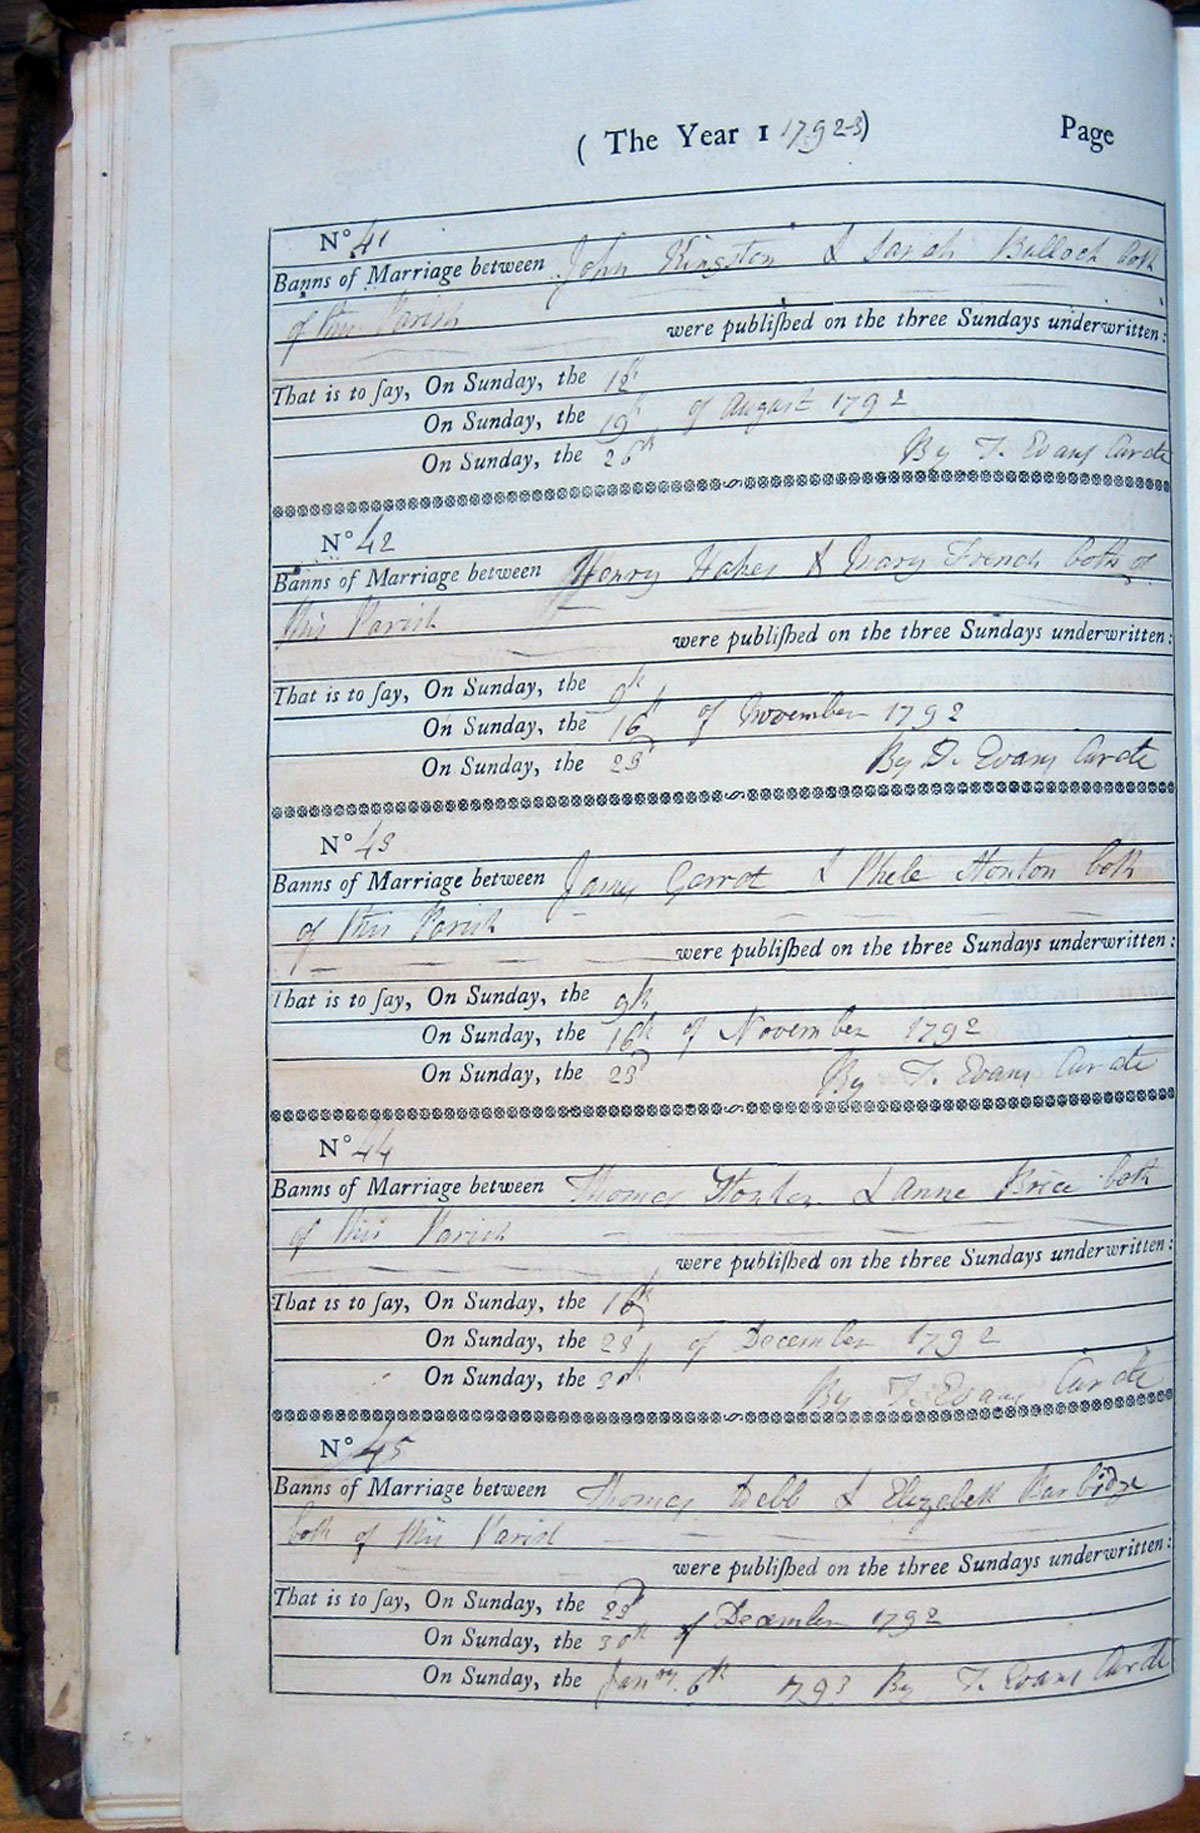 ( The Year 1 1792-3) Page
N° 41
Banns of Marriage between John Kingston & Sarah Bullock both
of this Parish
were publiſhed on the three Sundays underwritten:
That is to ſay, On Sunday, the 12th
On Sunday, the 19th of August 1792
On Sunday, the 26th
By T. Evans Curate
N° 42
Banns of Marriage between Henry Hakes & Mary French both of
this Parish
were publiſhed on the three Sundays underwritten:
That is to ſay, On Sunday, the 9th
On Sunday, the 16th of November 1792
On Sunday, the 23d
By T. Evans Curate
N° 43
Banns of Marriage between James Garrot & Phebe Stonton both
of this Parish
were publiſhed on the three Sundays underwritten:
That is to ſay, On Sunday, the 9th
On Sunday, the 16th of November 1792
On Sunday, the 23d By T. Evans Curate
N° 44
Banns of Marriage between Thomas & Anne Brice both
of this Parish
were publiſhed on the three Sundays underwritten:
That is to ſay, On Sunday, the 16th
On Sunday, the 23d of December 1792
On Sunday, the 30th
By T. Evans Curate
N° 45
Banns of Marriage between Thomas Webb & Elizebeth Barbidge
both of this Parish
were publiſhed on the three Sundays underwritten:
That is to ſay, On Sunday, the 23d
On Sunday, the 30th of December 1792
On Sunday, the Janry. 6th 1793 By T. Evans Curate